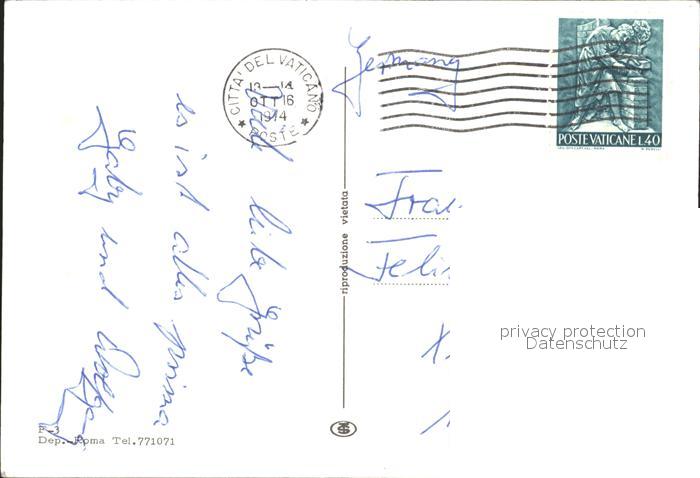 Viele liebe Grüße
es ist alles prima
Gaby und
CITTA' DEL VATICANO
13-14
OTT 16
1974
POSTE
Germany
POSTE VATICANE L.40
Frau
Feli
riproduzione vietata
privacy protection
Datenschutz
P-3
Dep. Roma Tel.771071